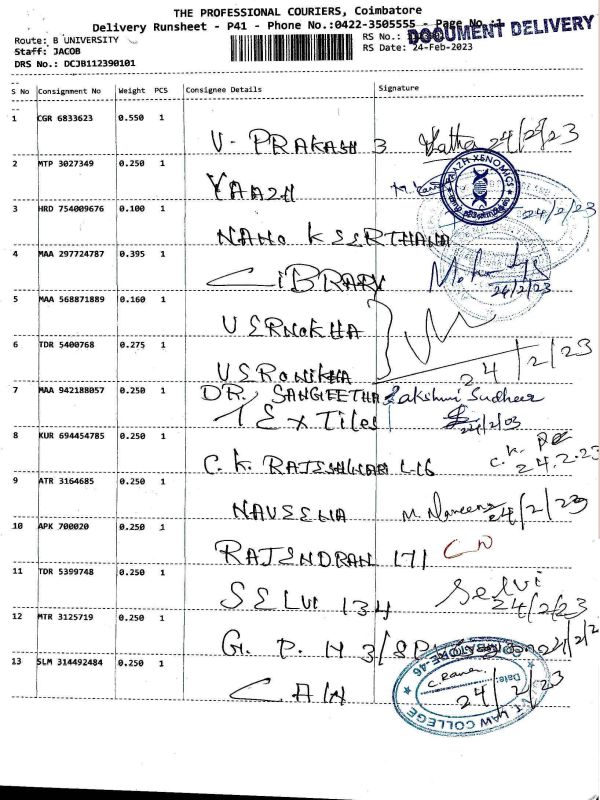 THE PROFESSIONAL COURIERS, Coimbatore
Delivery Runsheet - P41 - Phone No.:0422-3505555 - Page No.:1
DOCUMENT DELIVERY
Route: B UNIVERSITY
RS No.:
Staff: JACOB
RS Date: 24-Feb-2023
DRS No.: DCJB112390101
S No Consignment No Weight PCS Consignee Details Signature
1 CGR 6833623 0.550 1
V. PRAKASH 3 24/2/23
2 MTP 3027349 0.250 1
YAAZH
YAAZH XENOMICS
24/2/23
3 HRD 754009676 0.100 1
NANO KEERTHANA
4 MAA 297724787 0.395 1
LIBRARY
24/2/23
5 MAA 568871889 0.160 1
6 TDR 5400768 0.275 1
24/2/23
7 MAA 942188057 0.250 1
DR. SANGEETHA Lakshmi Sudheer
TEXTiles
8 KUR 694454785 0.250 1
C. K. 24.2.23
9 ATR 3164685 0.250 1
24/2/23
10 APK 700020 0.250 1
RAJENDRAN 171
11 TDR 5399748 0.250 1
SELVI 134 Selvi
24/2/23
12 MTR 3125719 0.250 1
13 SLM 314492484 0.250 1
LAW
24/2/23
LAW COLLEGE